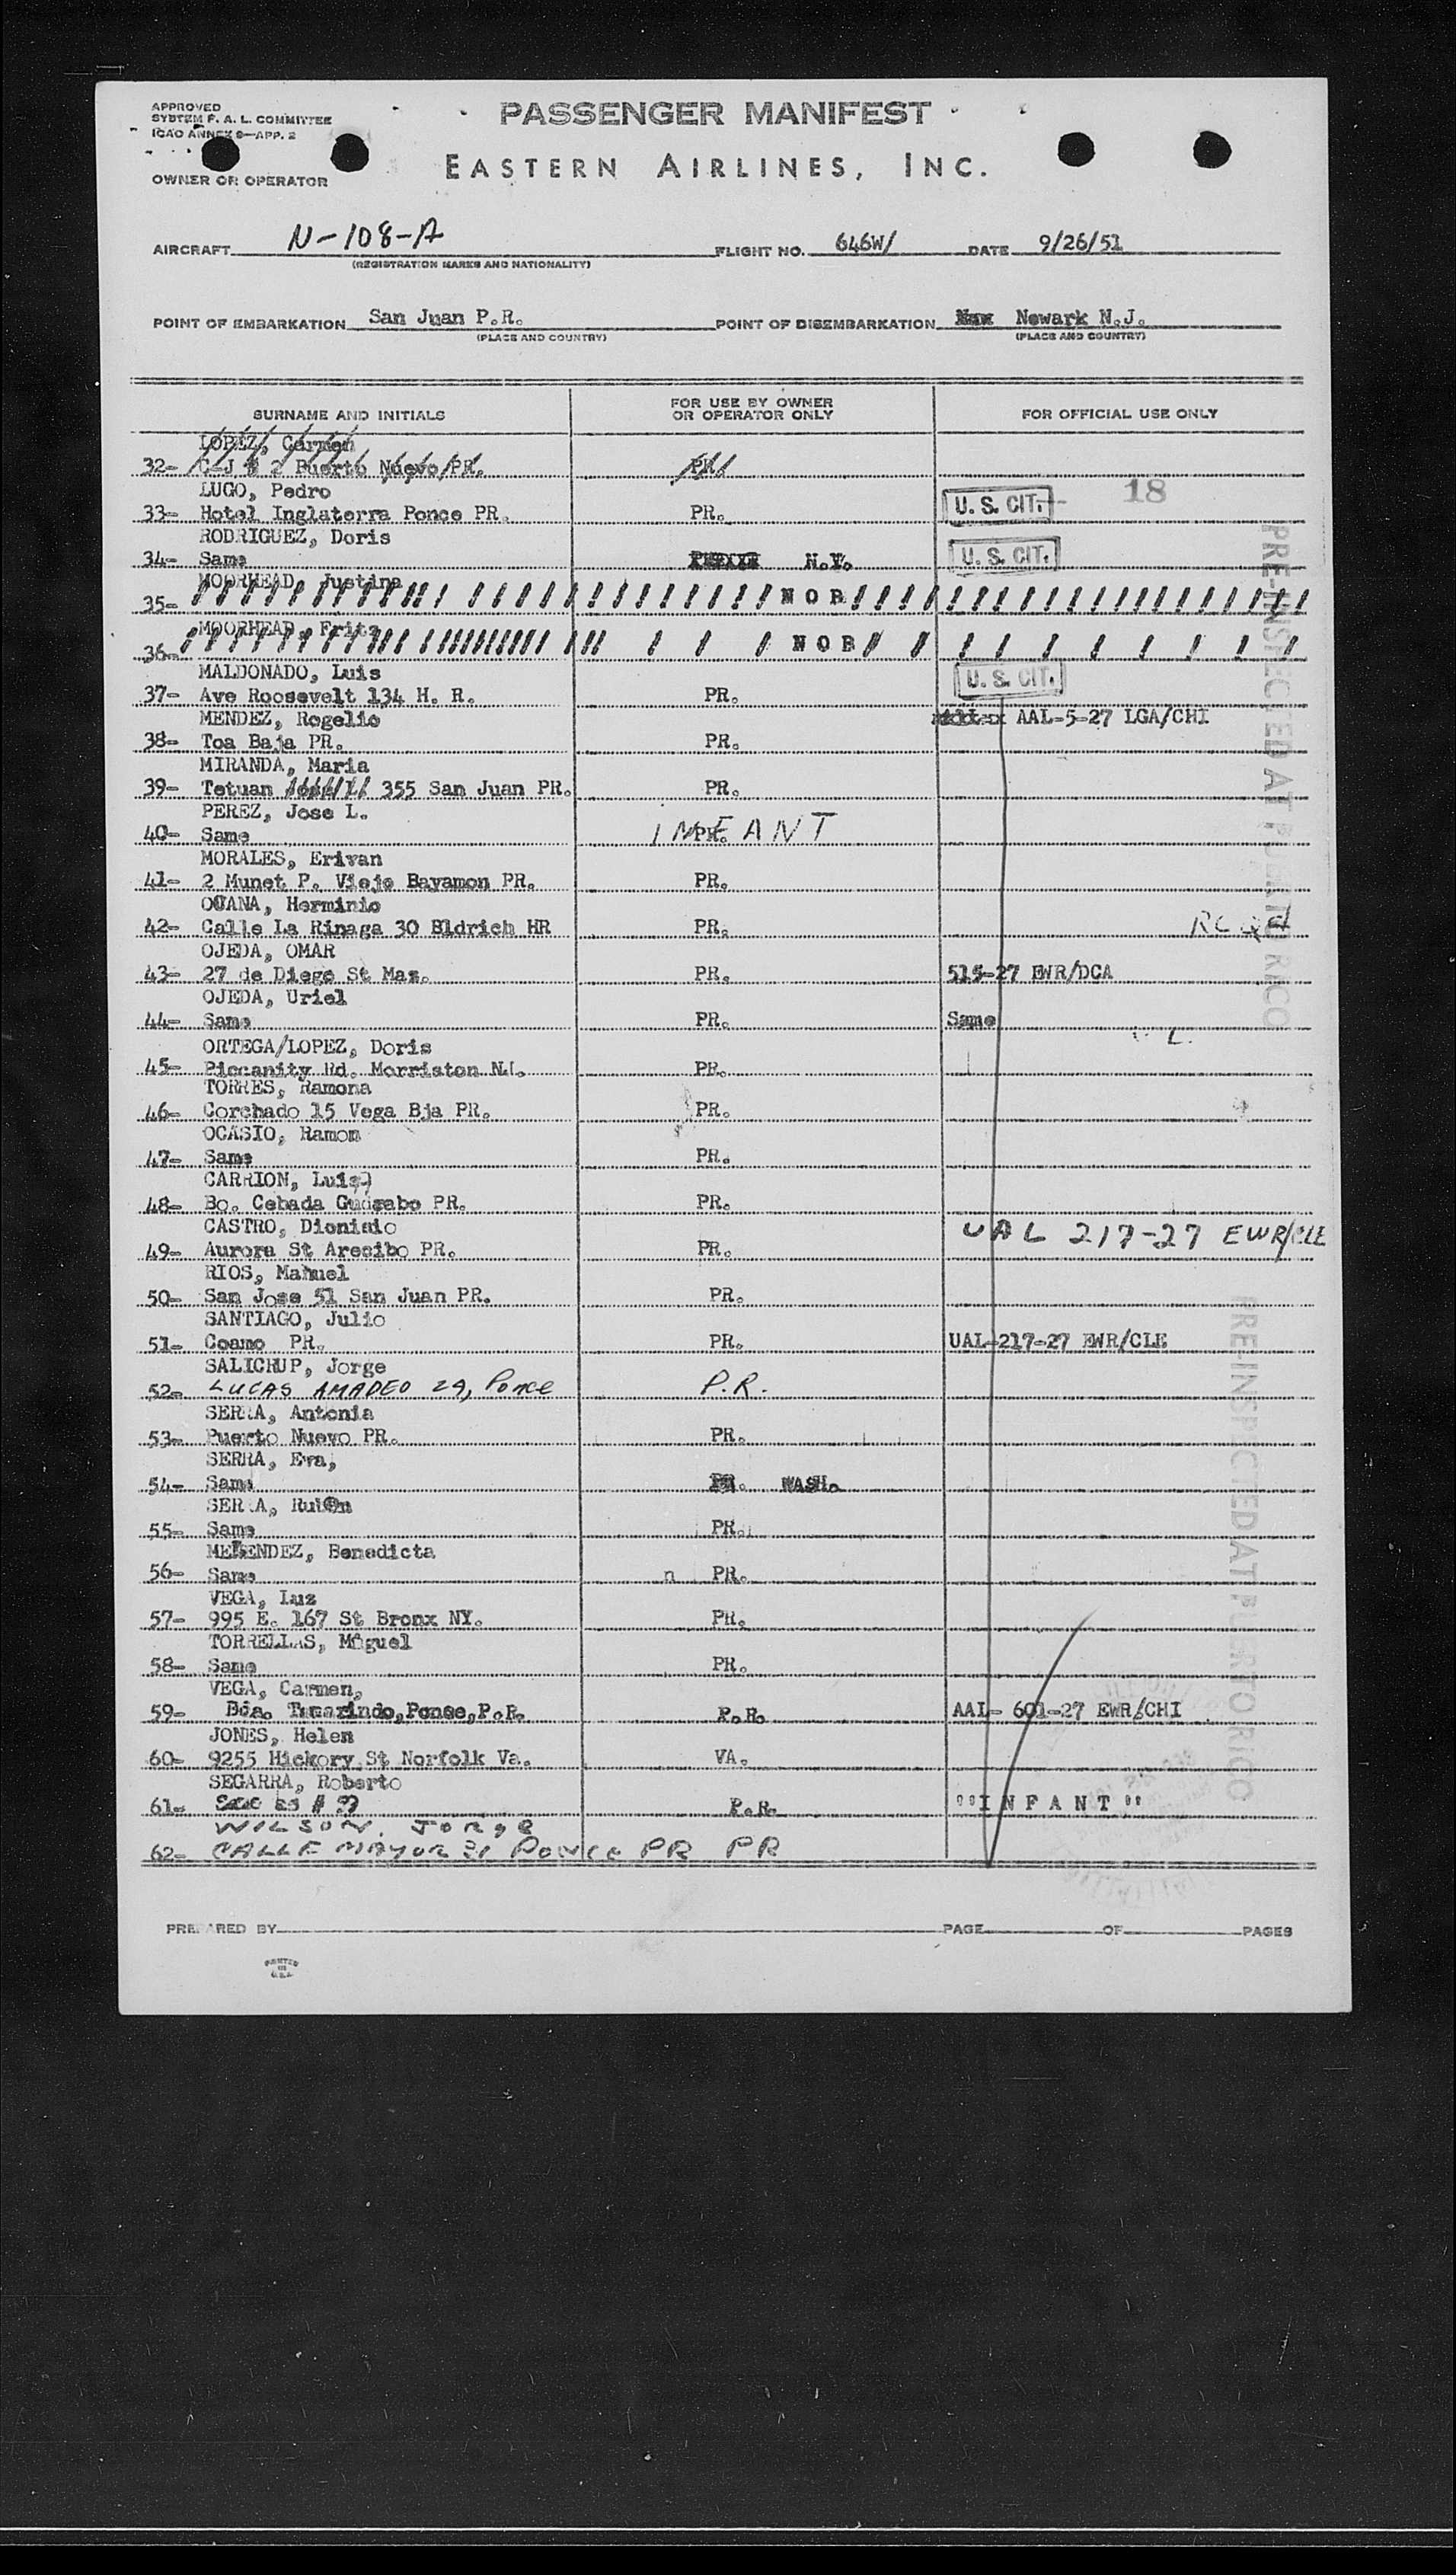 APPROVED
SYSTEM F. A. L. COMMITTEE
ICAO ANNEX 9—APP. 2
PASSENGER MANIFEST
EASTERN AIRLINES, INC.
OWNER OR OPERATOR
AIRCRAFT N-108-A FLIGHT NO. 646W/ DATE 9/26/51
(REGISTRATION MARKS AND NATIONALITY)
POINT OF EMBARKATION San Juan P.R. POINT OF DISEMBARKATION Newark N.J.
(PLACE AND COUNTRY) (PLACE AND COUNTRY)
SURNAME AND INITIALS FOR USE BY OWNER OR OPERATOR ONLY FOR OFFICIAL USE ONLY
LOPEZ, Carmen
32- C-J # 2 Puerto Nuevo PR. PR.
LUGO, Pedro
33- Hotel Inglaterra Ponce PR. PR. U. S. CIT. 18
RODRIGUEZ, Doris
34- Same N.Y. U. S. CIT.
MOORHEAD, Justina
35- N O B
MOORHEAD, Fritz
36- N O B
MALDONADO, Luis
37- Ave Roosevelt 134 H. R. PR. U. S. CIT.
MENDEZ, Rogelio AAL-5-27 LGA/CHI
38- Toa Baja PR. PR.
MIRANDA, Maria
39- Tetuan 355 San Juan PR. PR.
PEREZ, Jose L.
40- Same PR. INFANT
MORALES, Erivan
41- 2 Munet P. Viejo Bayamon PR. PR.
OCANA, Herminio
42- Calle La Rinaga 30 Eldrich HR PR.
OJEDA, OMAR
43- 27 de Diego St Maz. PR. 515-27 EWR/DCA
OJEDA, Uriel
44- Same PR. Same
ORTEGA/LOPEZ, Doris
45- Piccanity Rd. Morriston N.J. PR.
TORRES, Ramona
46- Corchado 15 Vega Bja PR. PR.
OCASIO, Ramon
47- Same PR.
CARRION, Luis
48- Bo. Cebada Guarabo PR. PR.
CASTRO, Dionisio UAL 217-27 EWR/CLE
49- Aurora St Arecibo PR. PR.
RIOS, Manuel
50- San Jose 51 San Juan PR. PR.
SANTIAGO, Julio
51- Coamo PR. PR. UAL-217-27 EWR/CLE
SALICRUP, Jorge
52- LUCAS AMADEO 29, Ponce P.R.
SERRA, Antonia
53- Puerto Nuevo PR. PR.
SERRA, Eva,
54- Same PR. WASH.
SERRA, Ruben
55- Same PR.
MELENDEZ, Benedicta
56- Same PR.
VEGA, Luz
57- 995 E. 167 St Bronx NY. PR.
TORRELLAS, Miguel
58- Same PR.
VEGA, Carmen,
59- Bda. Tamarindo,Ponce,P.R. P.R. AAL- 601-27 EWR/CHI
JONES, Helen
60- 9255 Hickory St Norfolk Va. VA.
SEGARRA, Roberto
61- P.R. "I N F A N T"
WILSON, Jorge
62- CALLE MAYOR 31 Ponce PR PR
PRE-INSPECTED AT PUERTO RICO
PRE-INSPECTED AT PUERTO RICO
PREPARED BY PAGE OF PAGES
PRINTED
IN
U.S.A.